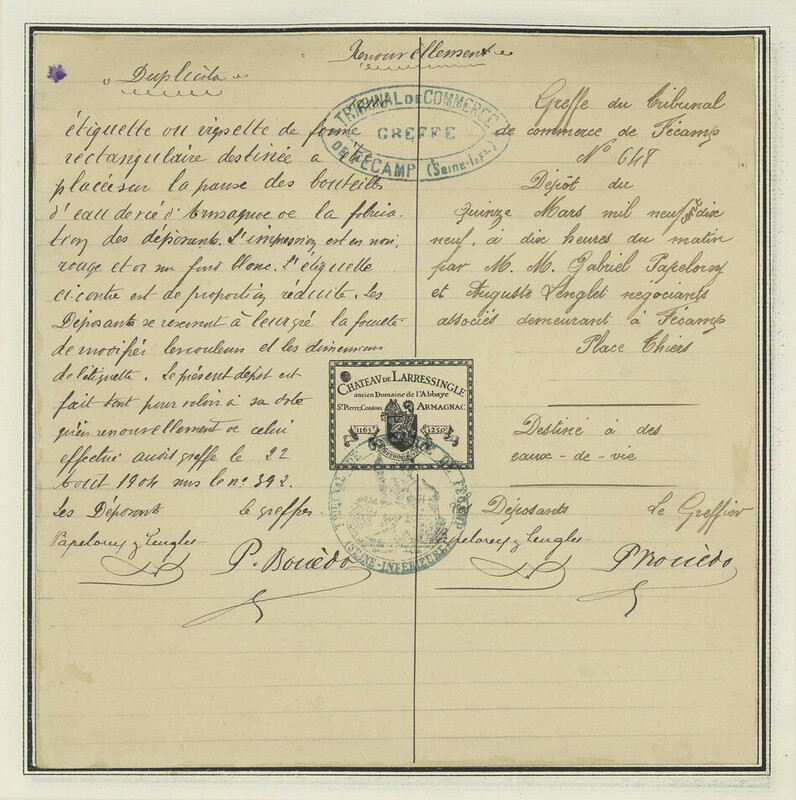 Renouvellement
Duplicata
étiquette ou vignette de forme
rectangulaire destinée a être
placée sur la panse des bouteilles
d'eau de vie d'Armagnac de la fabrica-
tion des déposants. L'impression est en noir,
rouge et or sur fond blanc. L'étiquette
ci-contre est de proportion réduite. Les
Déposants se réservent à leur gré la faculté
de modifier les couleurs et les dimensions
de l'étiquette. Le présent dépôt est
fait tant pour valoir à sa date
qu'en renouvellement de celui
effectué audit greffe le 22
Août 1904 sous le no. 392.
Les Déposants le greffier
Papelorey & Lenglet P. Bouëdo
TRIBUNAL DE COMMERCE
GREFFE
DE FÉCAMP (Seine-Infre)
Greffe du Tribunal
de commerce de Fécamp
No 648
Dépôt du
Quinze Mars mil neuf cent dix
neuf, à dix heures du matin
par M. M. Gabriel Papelorey
et Auguste Lenglet négociants
associés demeurant à Fécamp
Place Thiers
CHATEAU DE LARRESSINGLE
ancien Domaine de l'Abbaye
St Pierre, Condom ARMAGNAC
1163 1250
Destiné à des
eaux-de-vie
TRIBUNAL DE COMMERCE DE FÉCAMP
(SEINE-INFÉRIEURE)
Les Déposants Le Greffier
Papelorey & Lenglet P Bouëdo